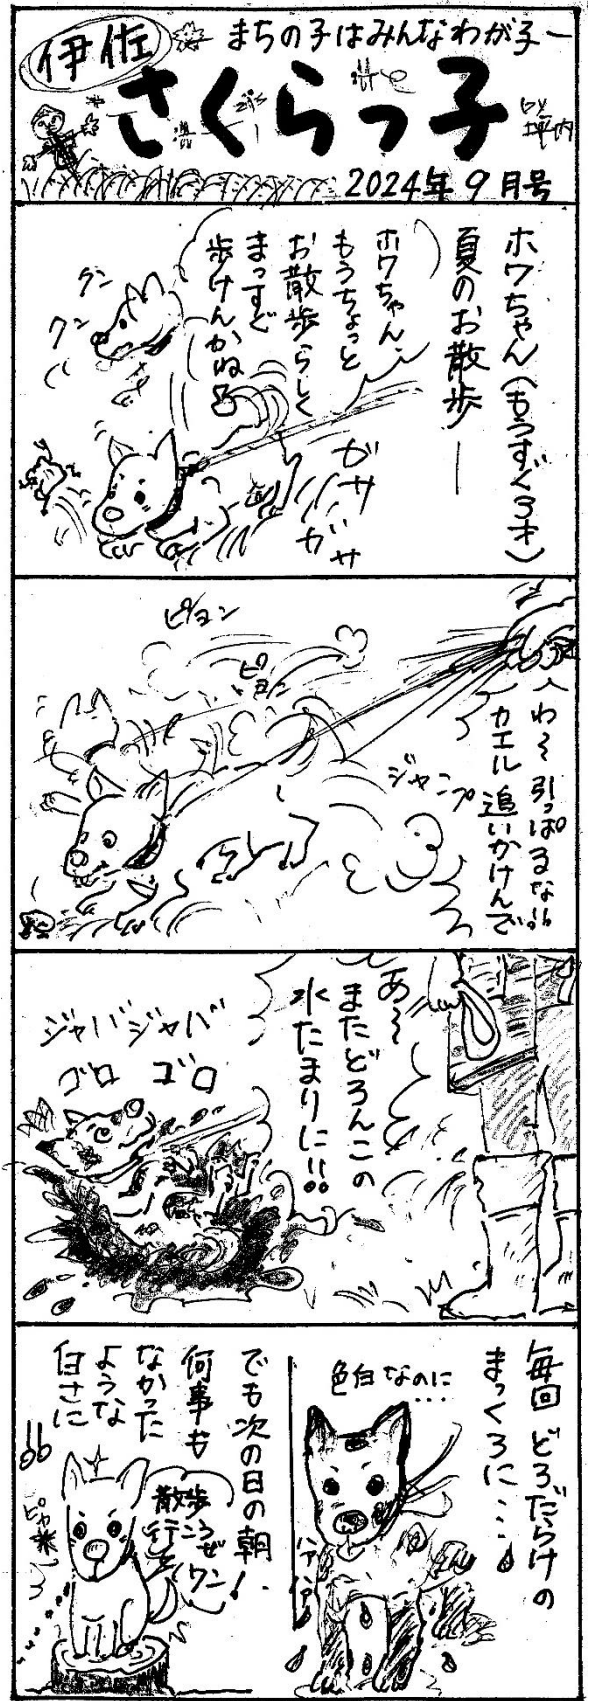 伊佐
まちの子はみんなわが子
さくらっ子
2024年9月号
ホワちゃん(もうすぐ3才)
夏のお散歩ー
ホワちゃん
もうちょっと
お散歩らしく
まっすぐ
歩けんかね
クン
クン
ガサ
ガサ
ピョン
ピョン
わ〜引っぱるな!!
カエル追いかけんで
ジャンプ
あ〜
またどろんこの
水たまりに!!
ジャバジャバ
ゴロ ゴロ
毎回どろだらけの
まっくろに…
色白なのに
…
ハアハア
でも次の日の朝、
何事も
なかった
ような
白さに
!!
散歩
行こうぜ
ワン!